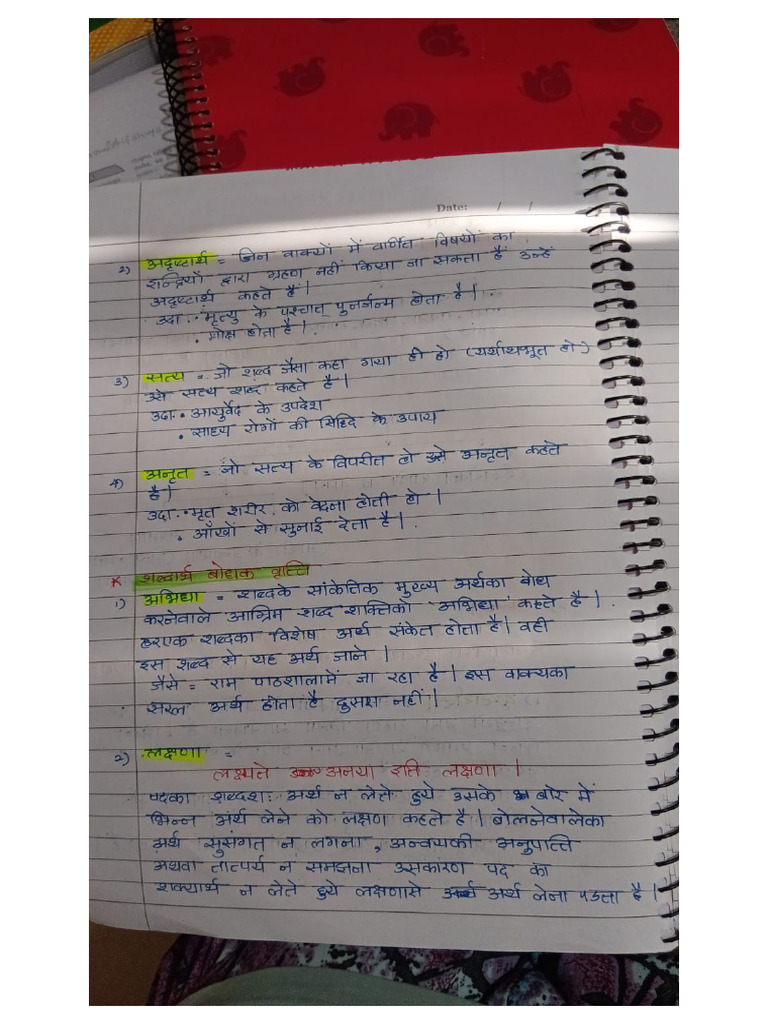 Date: / /
2) अदृष्टार्थ = जिन वाक्यों में वर्णित विषयों का
इन्द्रियों द्वारा ग्रहण नहीं किया जा सकता हैं उन्हें
अदृष्टार्थ कहते हैं।
उदा. • मृत्यु के पश्चात् पुनर्जन्म होता है।
• मोक्ष होता है।
3) सत्य = जो शब्द जैसा कहा गया ही हो (यर्थाथभूत हो)
उसे सत्य शब्द कहते है।
उदा. • आयुर्वेद के उपदेश
• साध्य रोगों की सिध्दि के उपाय
4) अनृत = जो सत्य के विपरीत हो उसे अनृत कहते
है।
उदा. • मृत शरीर को वेदना होती हो।
• आँखों से सुनाई देता है।
* शब्दार्थ बोधक वृत्ति
1) अभिधा = शब्दके सांकेतिक मुख्य अर्थका बोध
करनेवाले आग्रिम शब्द शक्तिको 'अभिधा' कहते है।
हरएक शब्दका विशेष अर्थ संकेत होता है। वही
इस शब्द से यह अर्थ जाने।
जैसे = राम पाठशालामें जा रहा है। इस वाक्यका
सरल अर्थ होता है दुसरा नहीं।
2) लक्षणा =
लक्ष्यते अनया इति लक्षणा।
पदका शब्दशः अर्थ न लेते हुये उसके बोर में
भिन्न अर्थ लेने को लक्षण कहते है। बोलनेवालेका
अर्थ सुसंगत न लगना, अन्वयकी अनुपात्ति
अथवा तात्पर्य न समझना उसकारण पद का
शक्यार्थ न लेते हुये लक्षणासे अर्थ लेना पडता है।